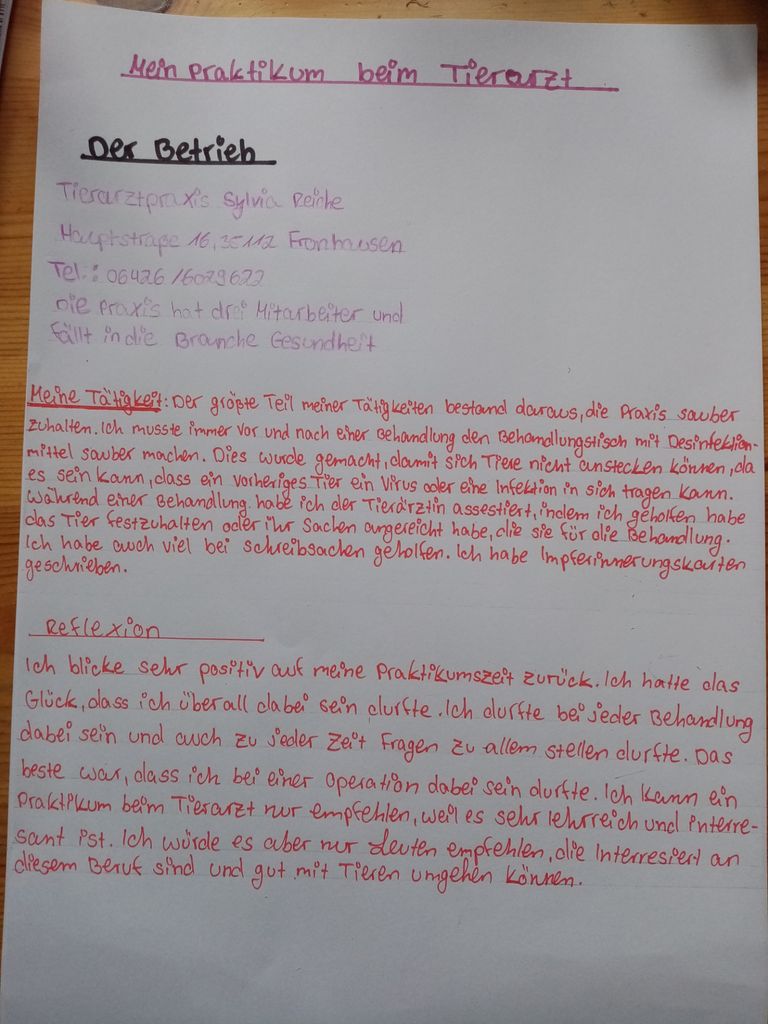 Mein praktikum beim Tierarzt
Der Betrieb
Tierarztpraxis Sylvia Reiche
Hauptstraße 16, 35112 Fronhausen
Tel.: 06426/6029622
Die Praxis hat drei Mitarbeiter und
fällt in die Branche Gesundheit
Meine Tätigkeit: Der größte Teil meiner Tätigkeiten bestand daraus, die Praxis sauber
zuhalten. Ich musste immer vor und nach einer Behandlung den Behandlungstisch mit Desinfektion-
mittel sauber machen. Dies wurde gemacht, damit sich Tiere nicht anstecken können, da
es sein kann, dass ein vorheriges Tier ein Virus oder eine Infektion in sich tragen kann.
Während einer Behandlung habe ich der Tierärztin assestiert, indem ich geholfen habe
das Tier festzuhalten oder ihr Sachen angereicht habe, die sie für die Behandlung.
Ich habe auch viel bei schreibsachen geholfen. Ich habe Impferinnerungskarten
geschrieben.
Reflexion
Ich blicke sehr positiv auf meine Praktikumszeit zurück. Ich hatte das
Glück, dass ich überall dabei sein durfte. Ich durfte bei jeder Behandlung
dabei sein und auch zu jeder Zeit Fragen zu allem stellen durfte. Das
beste war, dass ich bei einer Operation dabei sein durfte. Ich kann ein
Praktikum beim Tierarzt nur empfehlen, weil es sehr lehrreich und interre-
sant ist. Ich würde es aber nur Leuten empfehlen, die Interresiert an
diesem Beruf sind und gut mit Tieren umgehen können.